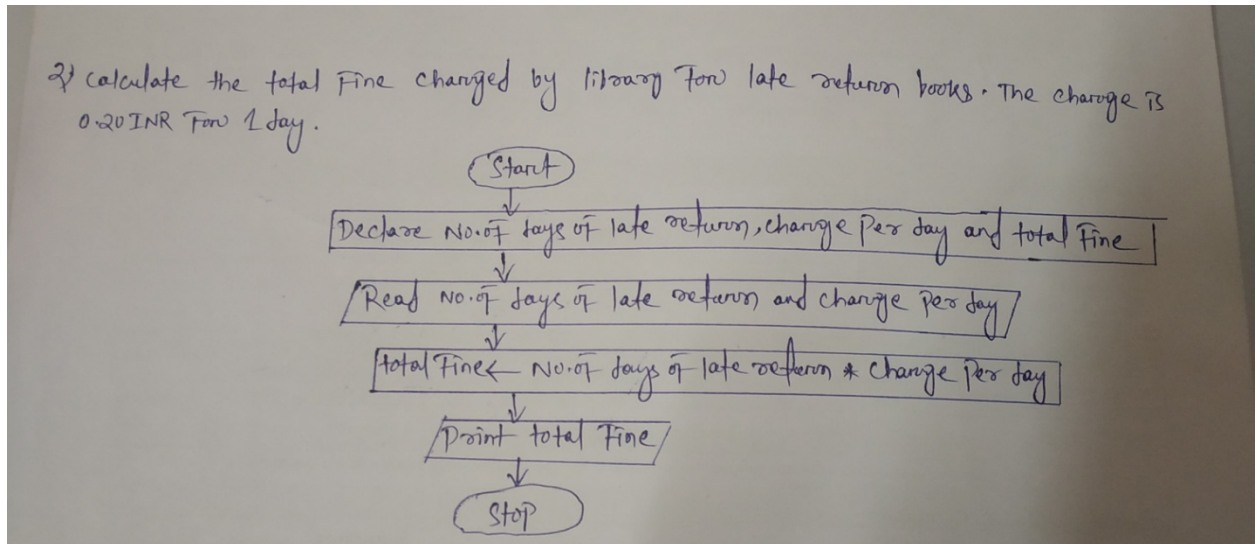 2) Calculate the total Fine charged by library For late return books. The charge is
0.20 INR For 1 day.
Start
Declare No. of days of late return, charge Per day and total Fine
Read No. of days of late return and charge Per day
total Fine ← No. of days of late return * charge Per day
Print total Fine
Stop